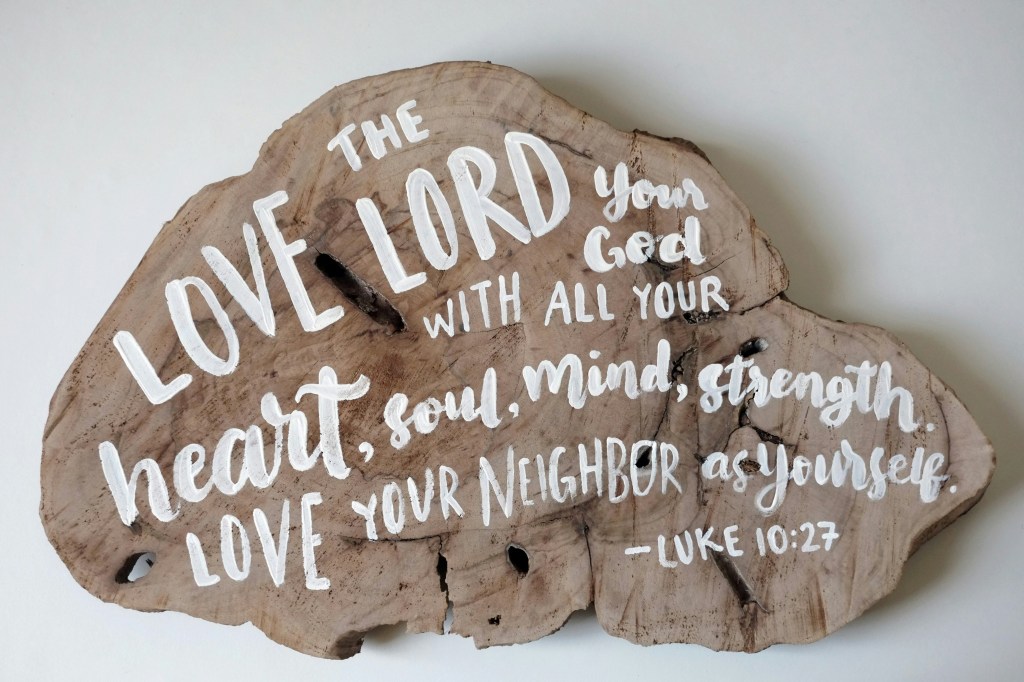 LOVE THE LORD your God
WITH ALL YOUR
heart, soul, mind, strength.
LOVE YOUR NEIGHBOR as yourself.
—LUKE 10:27